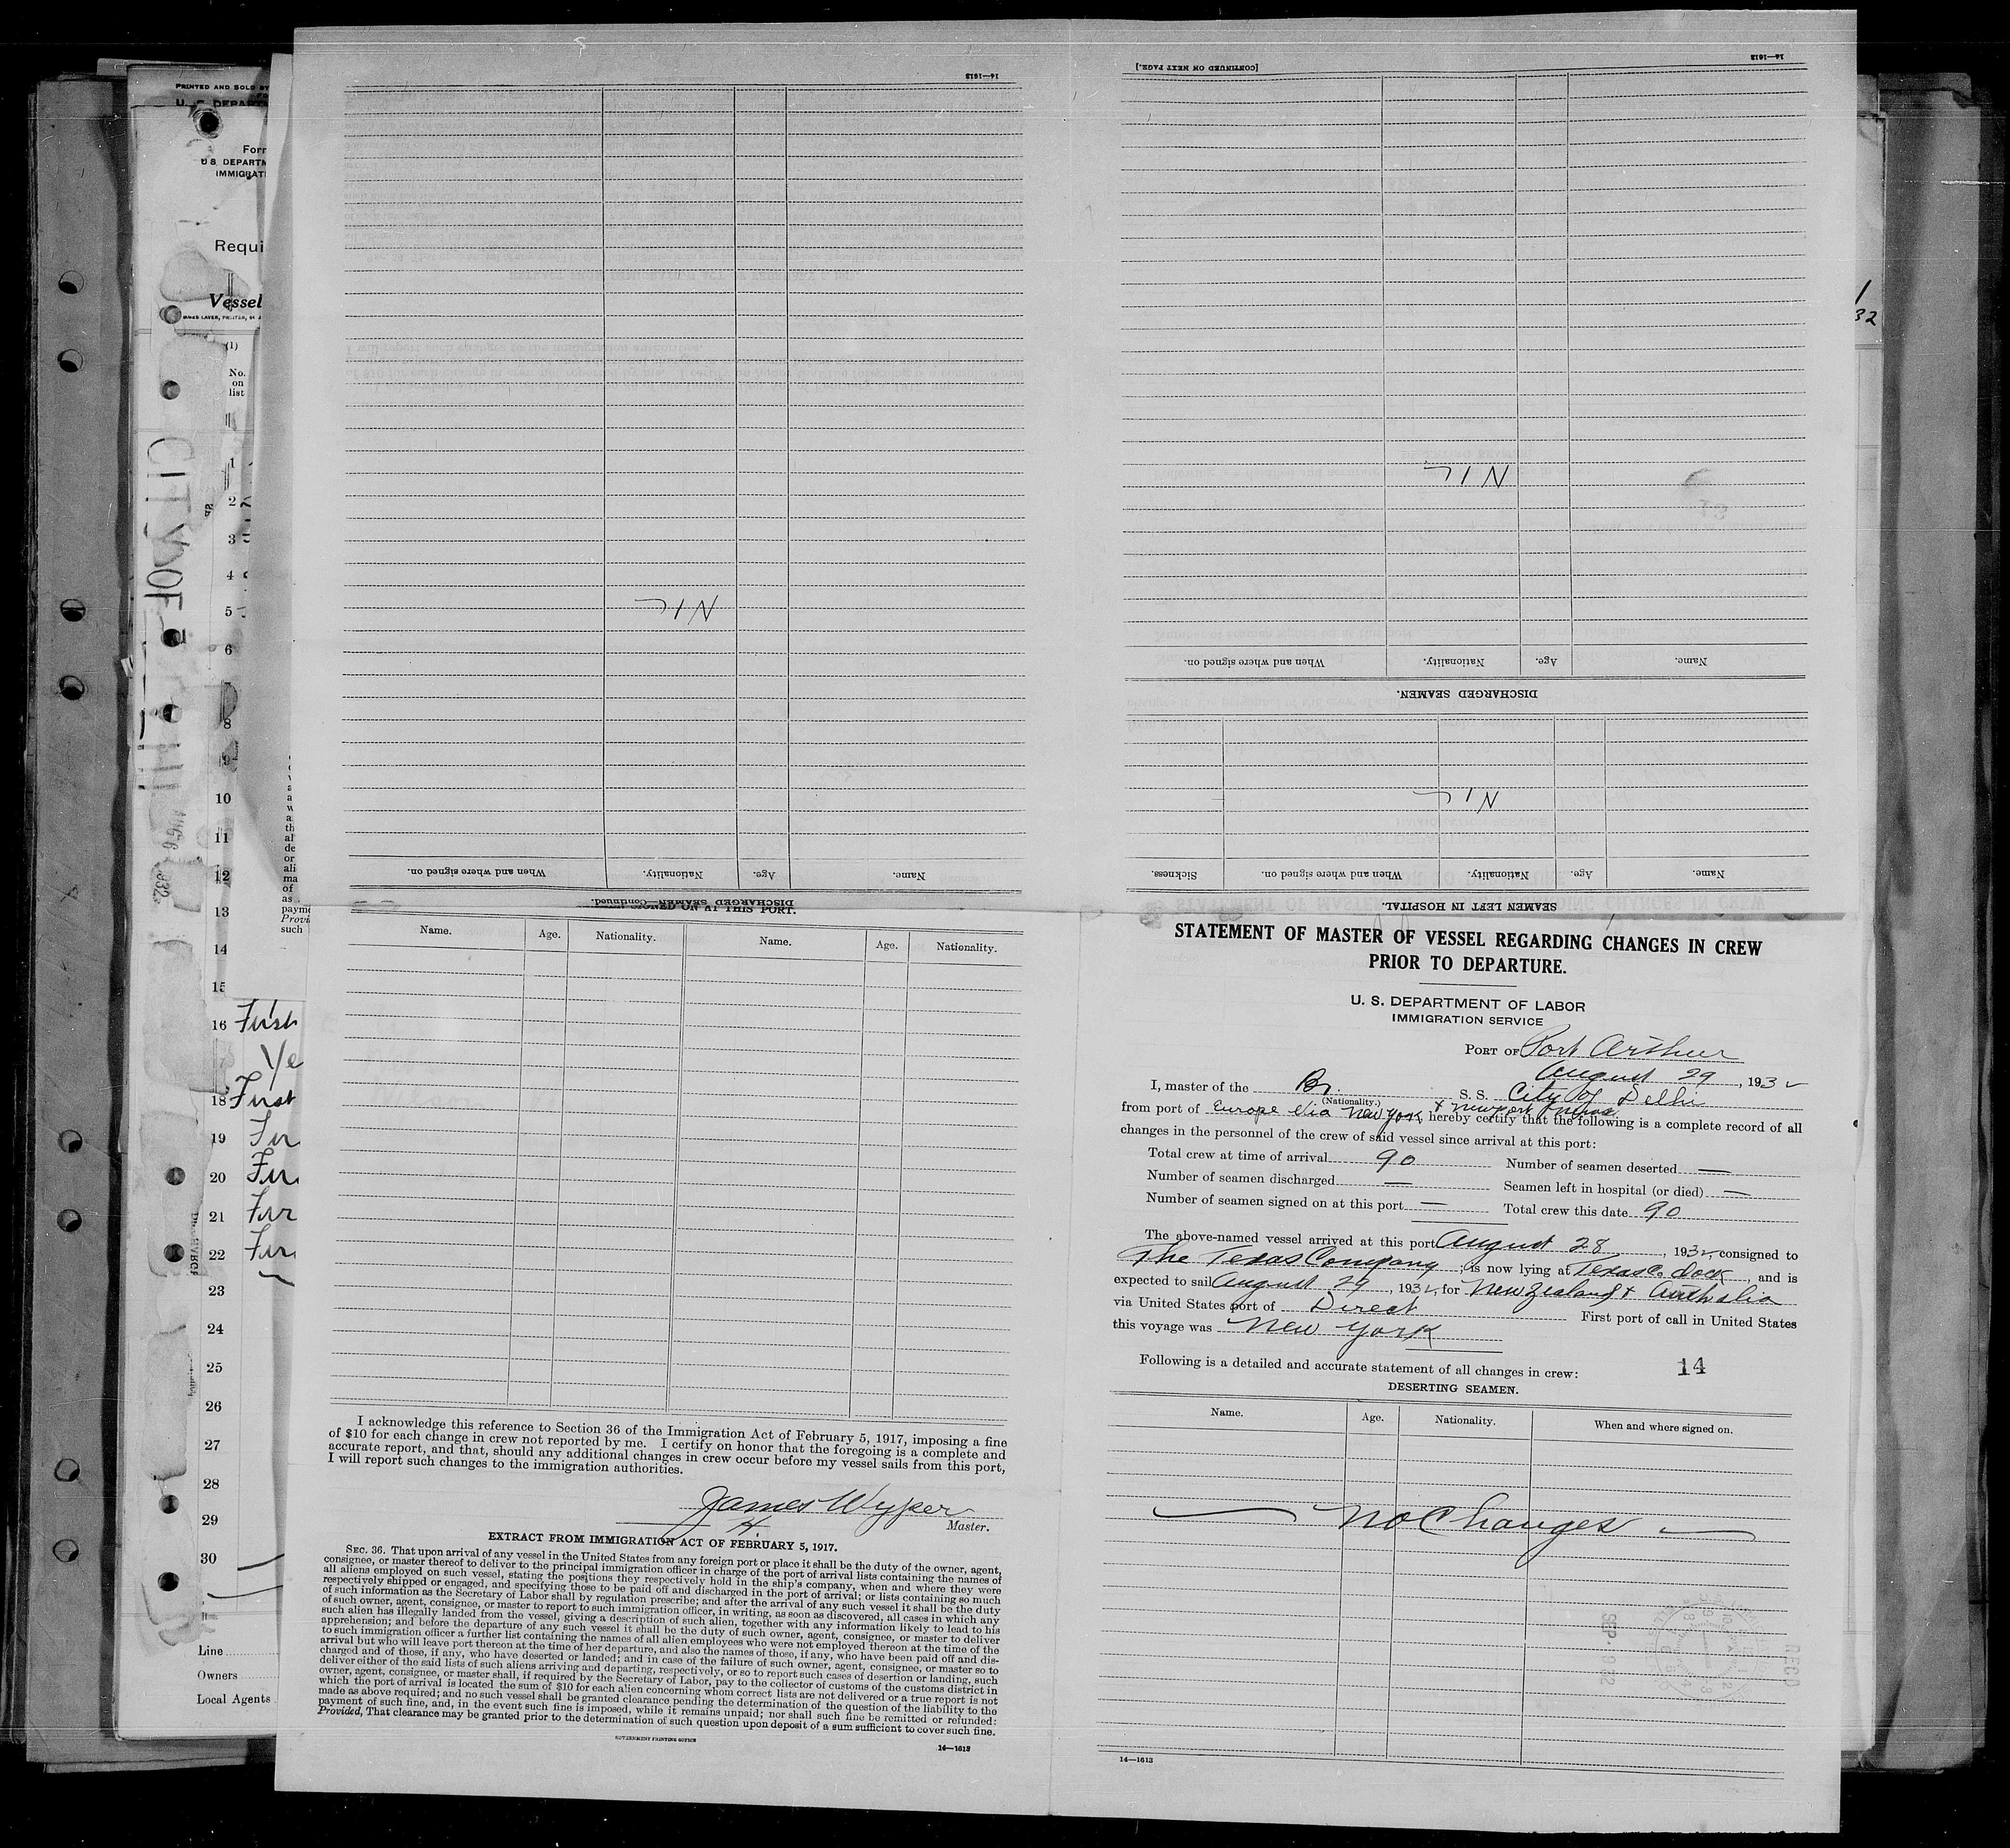 14—1613
NIL
When and where signed on.
Nationality.
Age.
Name.
DISCHARGED SEAMEN—Continued.
[CONTINUED ON NEXT PAGE.]
14—1613
NIL
When and where signed on.
Nationality.
Age.
Name.
DISCHARGED SEAMEN.
NIL
Sickness.
When and where signed on.
Nationality.
Age.
Name.
SEAMEN LEFT IN HOSPITAL.
SIGNED ON AT THIS PORT.
Name. Age. Nationality. Name. Age. Nationality.
I acknowledge this reference to Section 36 of the Immigration Act of February 5, 1917, imposing a fine
of $10 for each change in crew not reported by me. I certify on honor that the foregoing is a complete and
accurate report, and that, should any additional changes in crew occur before my vessel sails from this port,
I will report such changes to the immigration authorities.
James Wyper
Master.
EXTRACT FROM IMMIGRATION ACT OF FEBRUARY 5, 1917.
SEC. 36. That upon arrival of any vessel in the United States from any foreign port or place it shall be the duty of the owner, agent,
consignee, or master thereof to deliver to the principal immigration officer in charge of the port of arrival lists containing the names of
all aliens employed on such vessel, stating the positions they respectively hold in the ship's company, when and where they were
respectively shipped or engaged, and specifying those to be paid off and discharged in the port of arrival; or lists containing so much
of such information as the Secretary of Labor shall by regulation prescribe; and after the arrival of any such vessel it shall be the duty
of such owner, agent, consignee, or master to report to such immigration officer, in writing, as soon as discovered, all cases in which any
such alien has illegally landed from the vessel, giving a description of such alien, together with any information likely to lead to his
apprehension; and before the departure of any such vessel it shall be the duty of such owner, agent, consignee, or master to deliver
to such immigration officer a further list containing the names of all alien employees who were not employed thereon at the time of the
arrival but who will leave port thereon at the time of her departure, and also the names of those, if any, who have been paid off and dis-
charged and of those, if any, who have deserted or landed; and in case of the failure of such owner, agent, consignee, or master so to
deliver either of the said lists of such aliens arriving and departing, respectively, or so to report such cases of desertion or landing, such
owner, agent, consignee, or master shall, if required by the Secretary of Labor, pay to the collector of customs of the customs district in
which the port of arrival is located the sum of $10 for each alien concerning whom correct lists are not delivered or a true report is not
made as above required; and no such vessel shall be granted clearance pending the determination of the question of the liability to the
payment of such fine, and, in the event such fine is imposed, while it remains unpaid; nor shall such fine be remitted or refunded:
Provided, That clearance may be granted prior to the determination of such question upon deposit of a sum sufficient to cover such fine.
GOVERNMENT PRINTING OFFICE
14—1613
STATEMENT OF MASTER OF VESSEL REGARDING CHANGES IN CREW
PRIOR TO DEPARTURE.
U. S. DEPARTMENT OF LABOR
IMMIGRATION SERVICE
PORT OF Port Arthur
August 29, 1932
I, master of the Br. S. S. City of Delhi
(Nationality.)
from port of Europe via New York & Newport News, hereby certify that the following is a complete record of all
changes in the personnel of the crew of said vessel since arrival at this port:
Total crew at time of arrival 90 Number of seamen deserted —
Number of seamen discharged — Seamen left in hospital (or died) —
Number of seamen signed on at this port — Total crew this date 90
The above-named vessel arrived at this port August 28, 1932, consigned to
The Texas Company; is now lying at Texas Co. dock, and is
expected to sail August 29, 1932, for New Zealand & Australia
via United States port of Direct First port of call in United States
this voyage was New York
Following is a detailed and accurate statement of all changes in crew:
14
DESERTING SEAMEN.
Name. Age. Nationality. When and where signed on.
— No Changes —
REC'D
SEP. 9 32
14—1613
PRINTED AND SOLD BY
U. S. DEPART
Form
U.S. DEPARTM
IMMIGRATI
Requi
Vessel
(1)
No.
on
list
CITY OF
1
2
3
4
5
6
8
9
10
11
12
13
14
15
16 First
Ye
18 First
19 Fir
20 Fir
21 Fir
22 Fir
23
24
25
26
27
28
29
30
Line
Owners
Local Agents
32